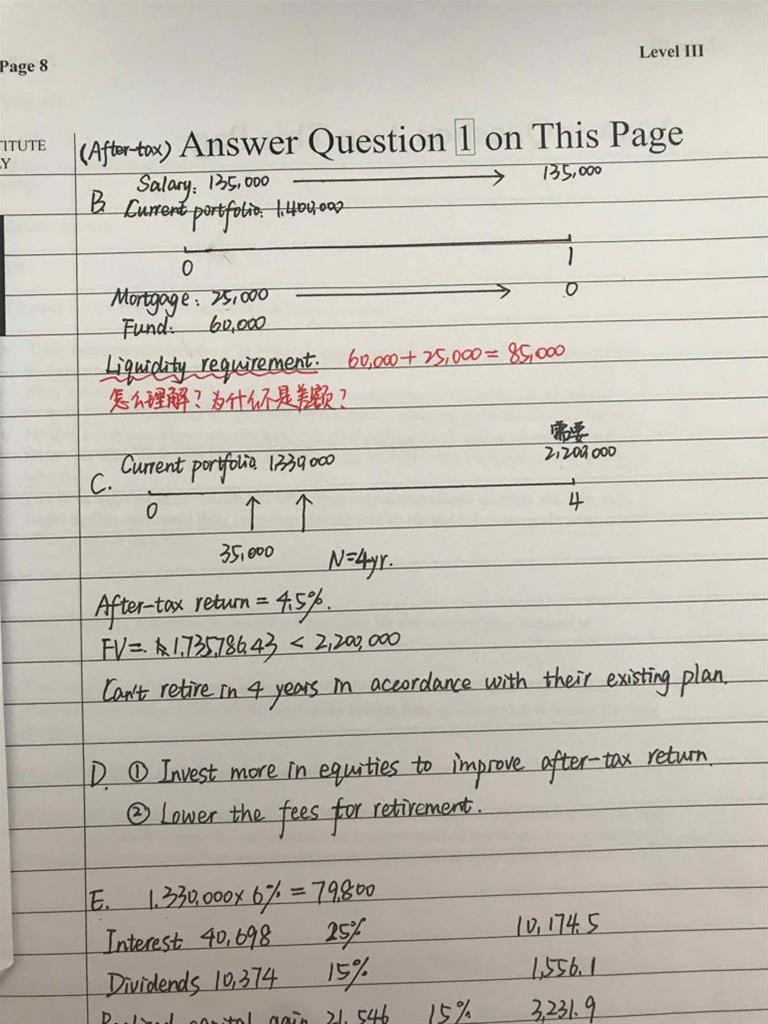 Page 8
Level III
TITUTE
Y
(After-tax) Answer Question 1 on This Page
Salary: 135,000 → 135,000
B. Current portfolio: 1,400,000
0 1
Mortgage: 25,000 → 0
Fund: 60,000
Liquidity requirement. 60,000+25,000=85,000
怎么理解?为什么不是差额?
需要
C. Current portfolio 1330,000 2,200,000
0 4
35,000 N=4yr.
After-tax return = 4.5%.
FV= 1,735,786.43 < 2,200,000
Can't retire in 4 years in accordance with their existing plan.
D. ① Invest more in equities to improve after-tax return.
② Lower the fees for retirement.
E. 1,330,000× 6% = 79,800
Interest 40,698 25% 10,174.5
Dividends 10,374 15% 1,556.1
Realized capital gain 21,546 15% 3,231.9